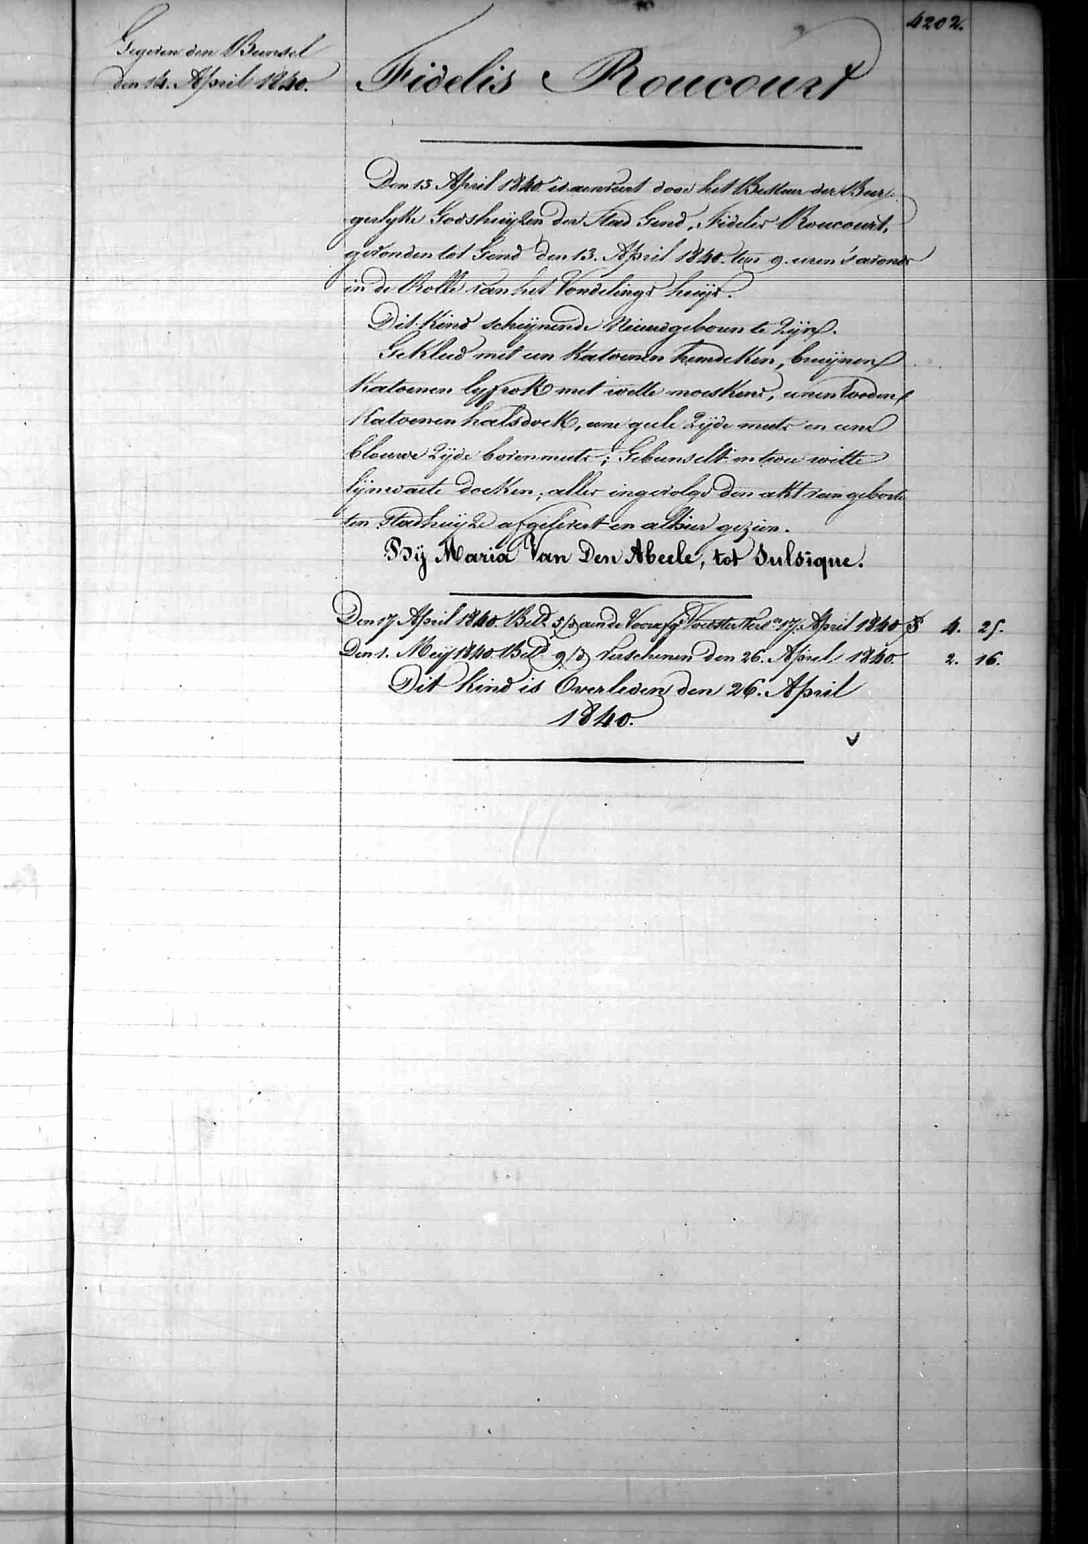 4202.
Gegeven den Bunsel
den 14. April 1840.
Fidelis Roucourt
Den 13 April 1840 is aenveirt door het Bestuer der Bur-
gerlyke Godshuijzen der Stad Gend, Fidelis Roucourt,
gevonden tot Gend den 13. April 1840. ten 9. uren s'avonds
in de Rolle van het Vondelings huijs.
Dit Kind scheijnende Nieuwgeboren te Zijn.
Gekleed met een Katoenen hemdeken, bruijnen
Katoenen lyfrok met witte moeskens, eenen rooden
Katoenen halsdoek, eene geele Zijde muts en eene
blauwe Zijde bovenmuts; Gebunselt in twee witte
lijnwaete doeken; alles ingevolge den akt van geboorte
ten Stadhuijze afgelevert en alhier gezien.
Bij Maria Van Den Abeele, tot Sulsique.
Den 17 April 1840. Bet.d 3/3 aen de Voorzg. Voedster Vers.n 17. April 1840. 4. 25.
Den 1. Meij 1840. Bet.d 9/3 Verschenen den 26. April 1840. 2. 16.
Dit Kind is Overleden den 26. April
1840.